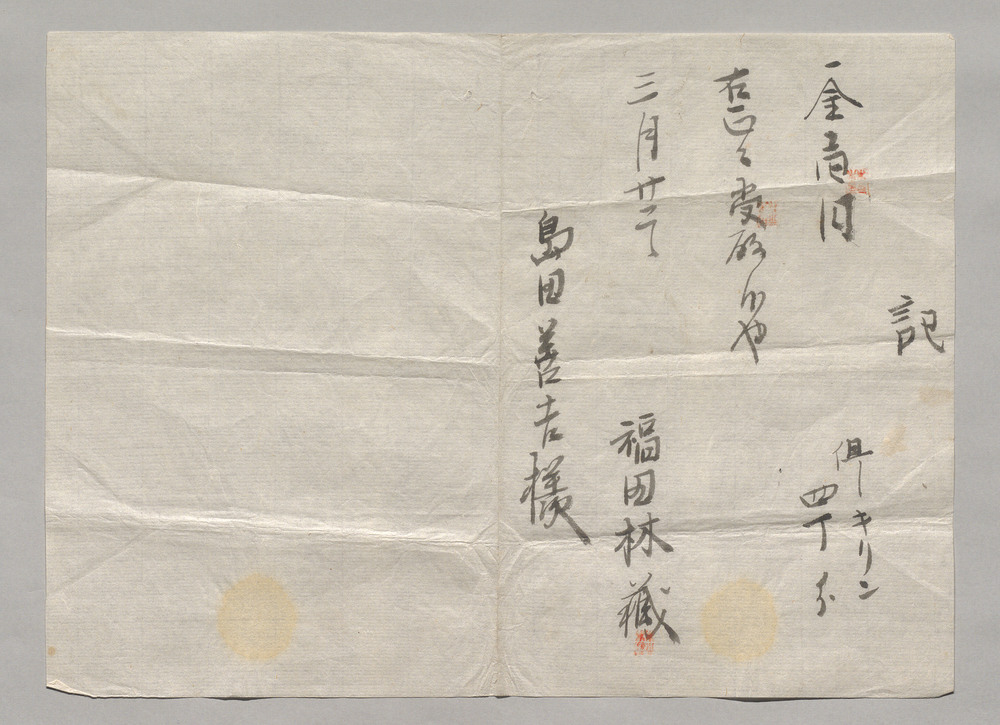 記
一金壱円
但シキリン
四丁分
右正ニ受取候也
三月廿二日
福田林蔵
島田善吉様